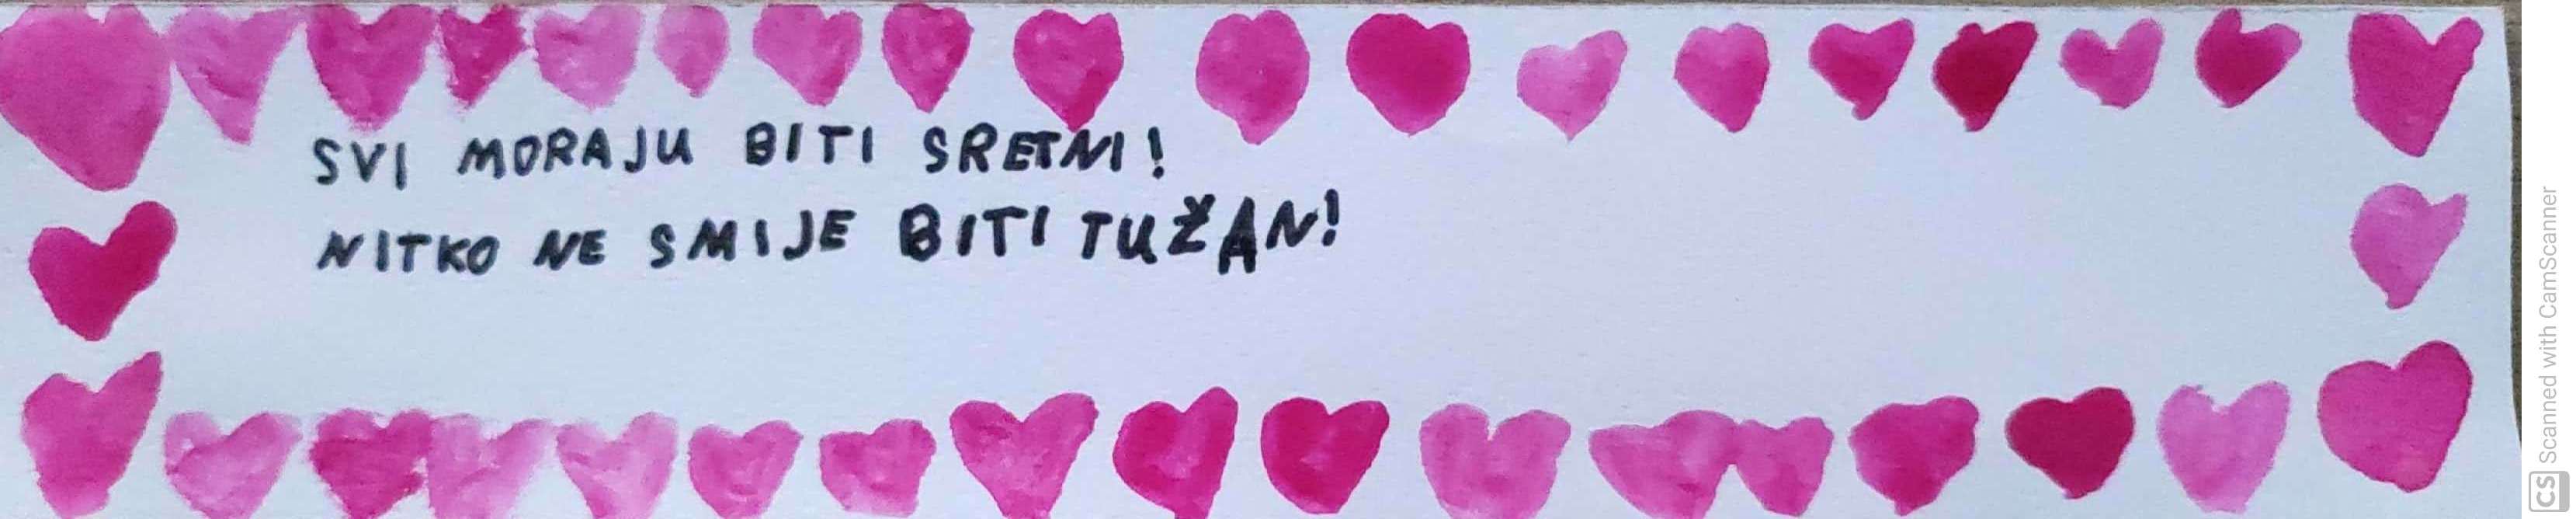 SVI MORAJU BITI SRETNI!
NITKO NE SMIJE BITI TUŽAN!
CS Scanned with CamScanner